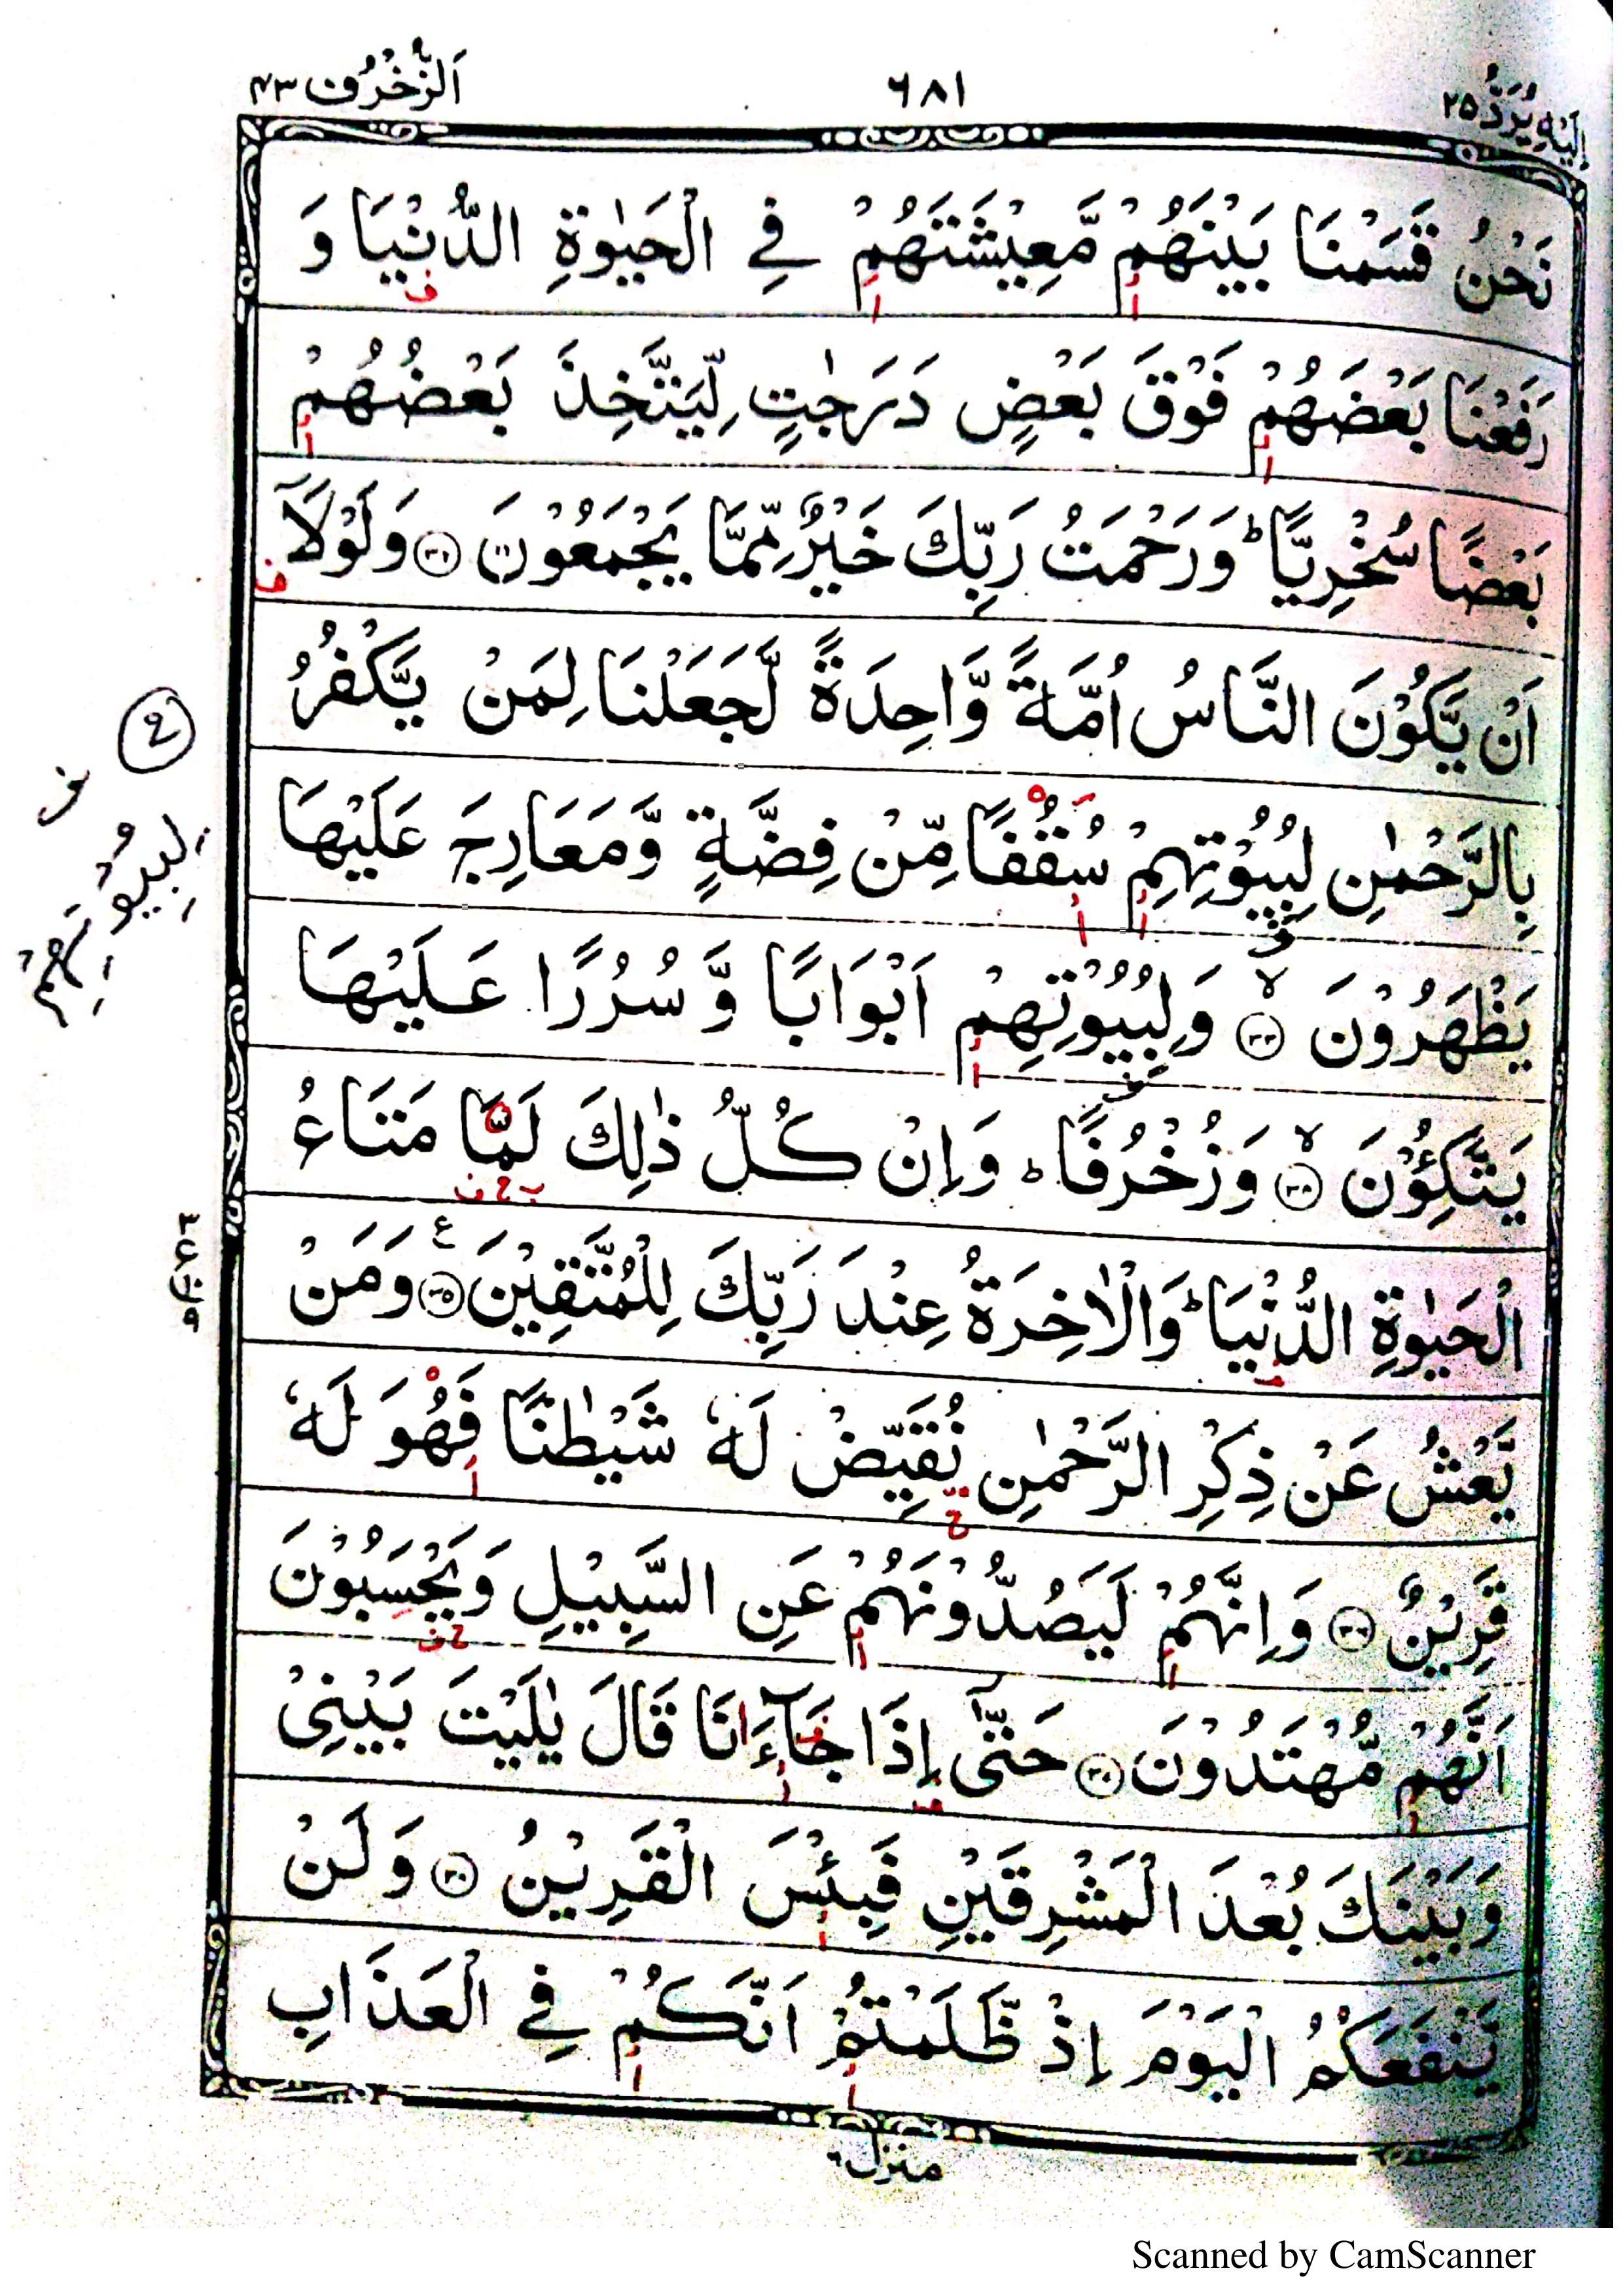 اِلَيْهِ يُرَدُّ ٢٥
٦٨١
اَلزُّخْرُف ٤٣
نَحْنُ قَسَمْنَا بَيْنَهُمْ مَّعِيْشَتَهُمْ فِي الْحَيٰوةِ الدُّنْيَا وَ
رَفَعْنَا بَعْضَهُمْ فَوْقَ بَعْضٍ دَرَجٰتٍ لِّيَتَّخِذَ بَعْضُهُمْ
بَعْضًا سُخْرِيًّا ؕ وَرَحْمَتُ رَبِّكَ خَيْرٌ مِّمَّا يَجْمَعُوْنَ ﴿٣٢﴾ وَلَوْلَآ
اَنْ يَّكُوْنَ النَّاسُ اُمَّةً وَّاحِدَةً لَّجَعَلْنَا لِمَنْ يَّكْفُرُ
بِالرَّحْمٰنِ لِبُيُوْتِهِمْ سُقُفًا مِّنْ فِضَّةٍ وَّمَعَارِجَ عَلَيْهَا
يَظْهَرُوْنَ ﴿٣٣﴾ وَلِبُيُوْتِهِمْ اَبْوَابًا وَّسُرُرًا عَلَيْهَا
يَتَّكِـُٔوْنَ ﴿٣٤﴾ وَزُخْرُفًا ؕ وَاِنْ كُلُّ ذٰلِكَ لَمَّا مَتَاعُ
الْحَيٰوةِ الدُّنْيَا ؕ وَالْاٰخِرَةُ عِنْدَ رَبِّكَ لِلْمُتَّقِيْنَ ﴿٣٥﴾ وَمَنْ
يَّعْشُ عَنْ ذِكْرِ الرَّحْمٰنِ نُقَيِّضْ لَهٗ شَيْطٰنًا فَهُوَ لَهٗ
قَرِيْنٌ ﴿٣٦﴾ وَاِنَّهُمْ لَيَصُدُّوْنَهُمْ عَنِ السَّبِيْلِ وَيَحْسَبُوْنَ
اَنَّهُمْ مُّهْتَدُوْنَ ﴿٣٧﴾ حَتّٰٓى اِذَا جَآءَنَا قَالَ يٰلَيْتَ بَيْنِيْ
وَبَيْنَكَ بُعْدَ الْمَشْرِقَيْنِ فَبِئْسَ الْقَرِيْنُ ﴿٣٨﴾ وَلَنْ
يَّنْفَعَكُمُ الْيَوْمَ اِذْ ظَّلَمْتُمْ اَنَّكُمْ فِي الْعَذَابِ
منزل ٦
لِبِيُوتِهِمْ
Scanned by CamScanner